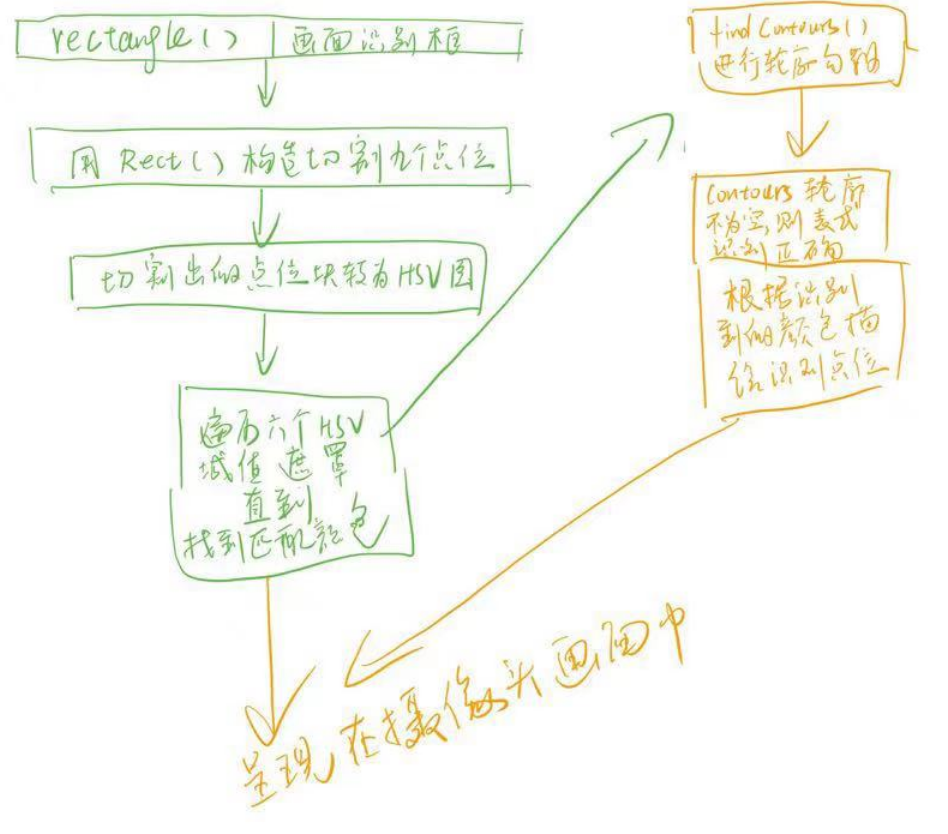 rectangle() 画面识别框
用 Rect() 构造切割九个点位
切割出的点位块转为HSV图
遍历六个HSV
域值 遮罩
直到
找到匹配颜色
findContours()
进行轮廓勾勒
Contours 轮廓
不为空,则表式
识别正确
根据识别
到的颜色描
绘识别点位
呈现在摄像头画面中